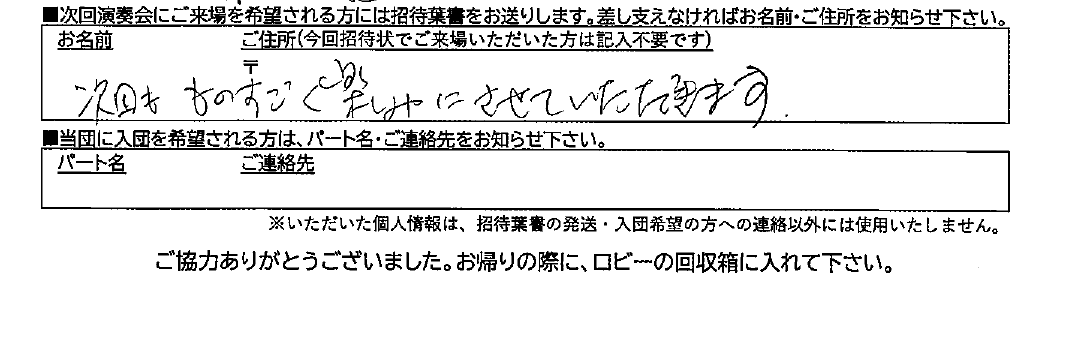 ■次回演奏会にご来場を希望される方には招待葉書をお送りします。差し支えなければお名前・ご住所をお知らせ下さい。
お名前 ご住所(今回招待状でご来場いただいた方は記入不要です)
〒
次回も ものすごく楽しみにさせていただきます
■当団に入団を希望される方は、パート名・ご連絡先をお知らせ下さい。
パート名 ご連絡先
※いただいた個人情報は、招待葉書の発送・入団希望の方への連絡以外には使用いたしません。
ご協力ありがとうございました。お帰りの際に、ロビーの回収箱に入れて下さい。